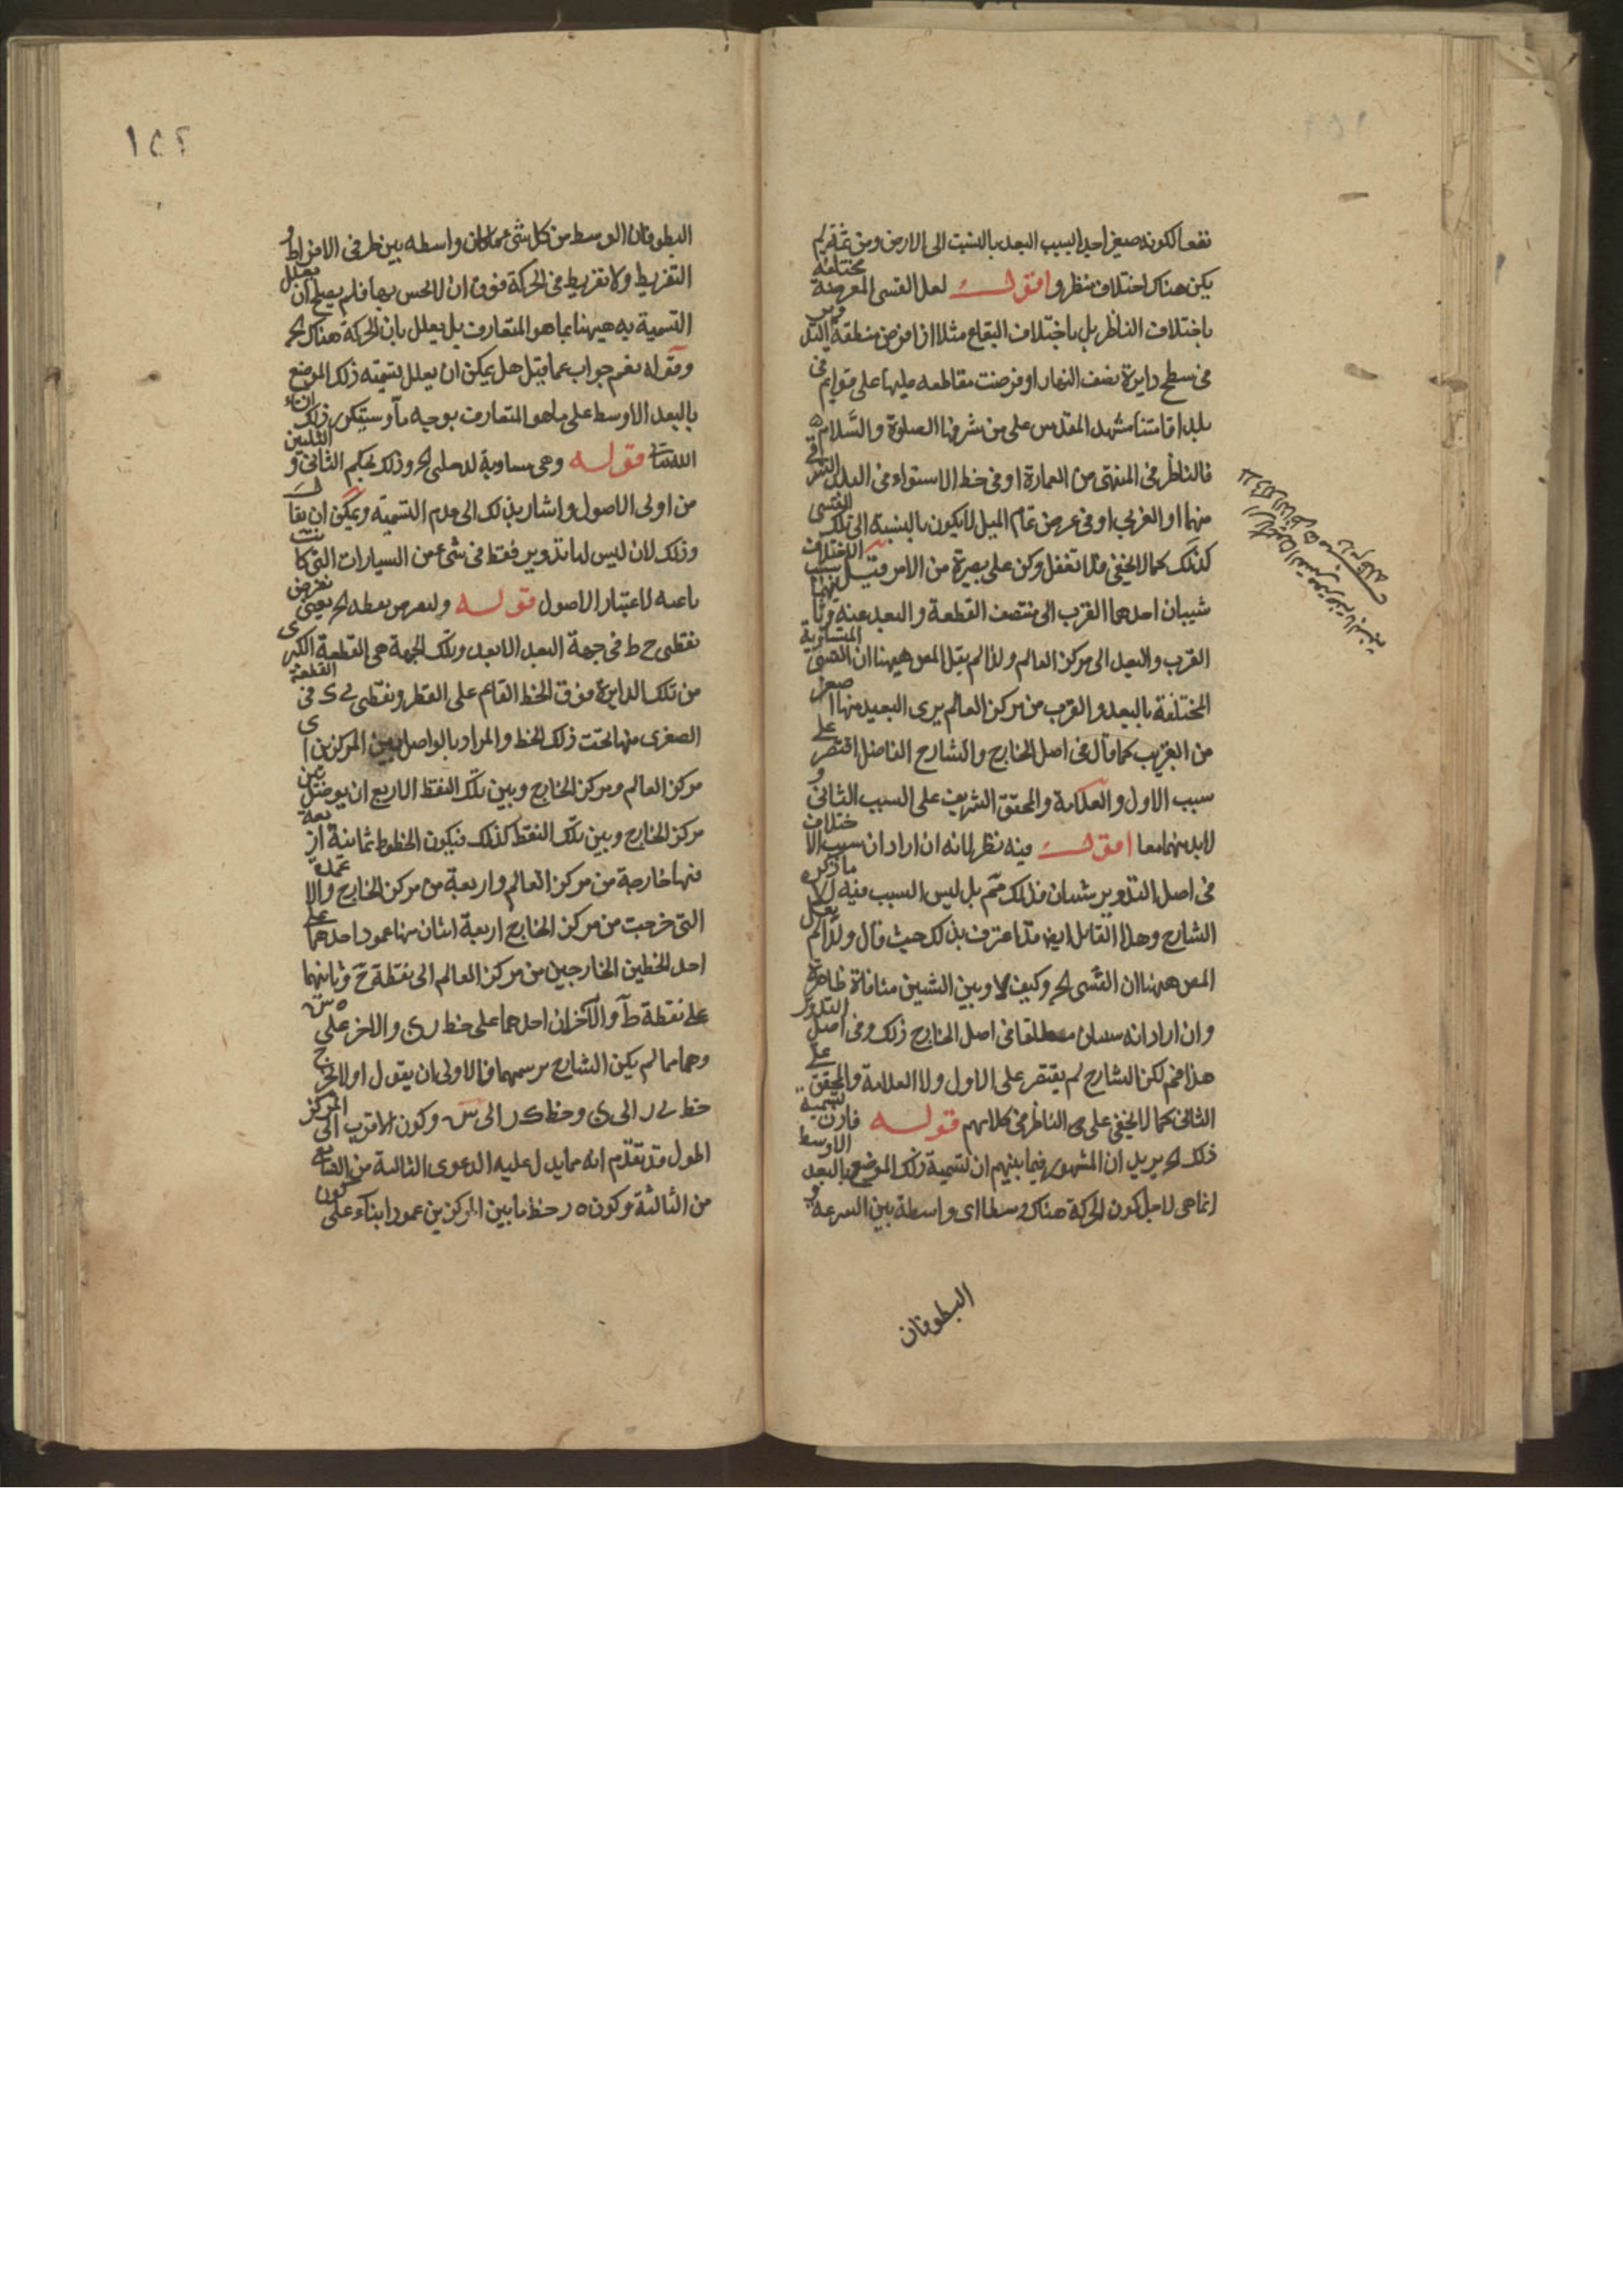 نفعا لكونه صغيرا جدا بسبب البعد بالنسبة الى الارض ومن ثمة لم
يكن هناك اختلاف منظر واقول لعل القسى المعروضة مختلفة
باختلاف الناظر بل باختلاف البقاع مثلا اذا فرض منطقة التدوير
فى سطح دايرة نصف النهار او فرضت مقاطعه عليها على قوايم فى
بلد اقامتنا مشهد المقدس على من شرفها الصلوة والسلام
فالناظر فى المنتهى من العمارة او فى خط الاستواء فى البلد الشرقى
منهما او الغربى او فى عرض تمام الميل لا يكون بالنسبة الى تلك القسى
كذلك كما لا يخفى فلا تغفل وكن على بصيرة من الامر قيل سبب الاختلاف
شيبان احدهما القرب الى منتصف القطعة والبعد عنه وثانيهما
القرب والبعد الى مركز العالم ولذا لم يقل المص ههنا ان القسى المتساوية
المختلفة بالبعد والقرب من مركز العالم يرى البعيد منها اصغر
من القريب كما قال فى اصل الخارج والشارح الفاضل اقتصر على
سبب الاول والعلامة والمحقق الشريف على السبب الثانى و
لابد منهما معا اقول فيه نظر لانه ان اراد ان سبب الاختلاف
فى اصل التدوير شيئان فذلك مم بل ليس السبب فيه الا ما ذكره
الشارح وهذا القايل ايضا قد اعترف بذلك حيث قال ولذا لم يقل
المص ههنا ان القسى الخ وكيف لا وبين الشيئين منافاة ظاهرة
وان اراد انه سببان مطلقا فى اصل الخارج ذلك وفى اصل التدوير
هذا فمم لكن الشارح لم يقتصر على الاول ولا العلامة والمحقق على
الثانى كما لا يخفى على الناظر فى كلامهم قوله فارن تسمية
ذلك الخ يريد ان المشهور فيما بينهم ان تسمية ذلك الموضع بالبعد الاوسط
انما هى لاجل كون الحركة هناك وسطا اى واسطة بين السرعة و
البطوفان
١٥٢
البطوفان الوسط من كل شئ عما كان واسطه بين طرفى الافراط و
التفريط ولا تفريط فى الحركة فوق ان لا يحس بها فلم يصلح ان يعلل
التسمية به ههنا بما هو المتعارف بل يعلل بان الحركة هناك الخ
وقوله نعم جواب عما قيل هل يمكن ان يعلل تسمية ذلك الموضع
بالبعد الاوسط على ما هو المتعارف بوجه ما وستيكون ذلك ان شاء
الله تعالى قوله وهى مساوية لد على الخ وذلك بحكم الثانى و الثلثين
من اولى الاصول واشار بذلك الى عدم التسمية ويمكن ان يقال
وذلك لان ليس لنا تدوير فقط فى شئ من السيارات التى كانت
باعثه لاعتبار الاصول قوله ولنعرض نقطه الخ يعنى نعرض
نقطتى ح ط فى جهة البعد الابعد وتلك الجهة هى القطعة الكبرى
من تلك الدايرة فوق الخط القائم على القطر ونقطتى ل ى فى القطعة
الصغرى منها تحت ذلك الخط والمراد بالواصل بين المركزين اى
مركز العالم ومركز الخارج وبين تلك النقط الاربع ان يوصل بين
مركز الخارج وبين تلك النقط كذلك فيكون الخطوط ثمانية اربعة
منها خارجة من مركز العالم واربعة من مركز الخارج والاعمدة
التى خرجت من مركز الخارج اربعة اثنان منها عمود احدهما على
احد الخطين الخارجين من مركز العالم الى نقطة ح وثانيهما
على نقطة ط والآخران احدهما على خط ر ى والاخر على ه س
وهما ما لم يكن الشارح يرسمهما فالاولى ان يقول اولا يخرج
خط ل ر الى ى وخط ك ر الى س وكون الاقرب الى المركز
اطول قد تقدم انه مما يدل عليه الدعوى الثالثة من السابع
من الثالثة وكون ه ر خط ما بين المركزين عمودا بناء على كون